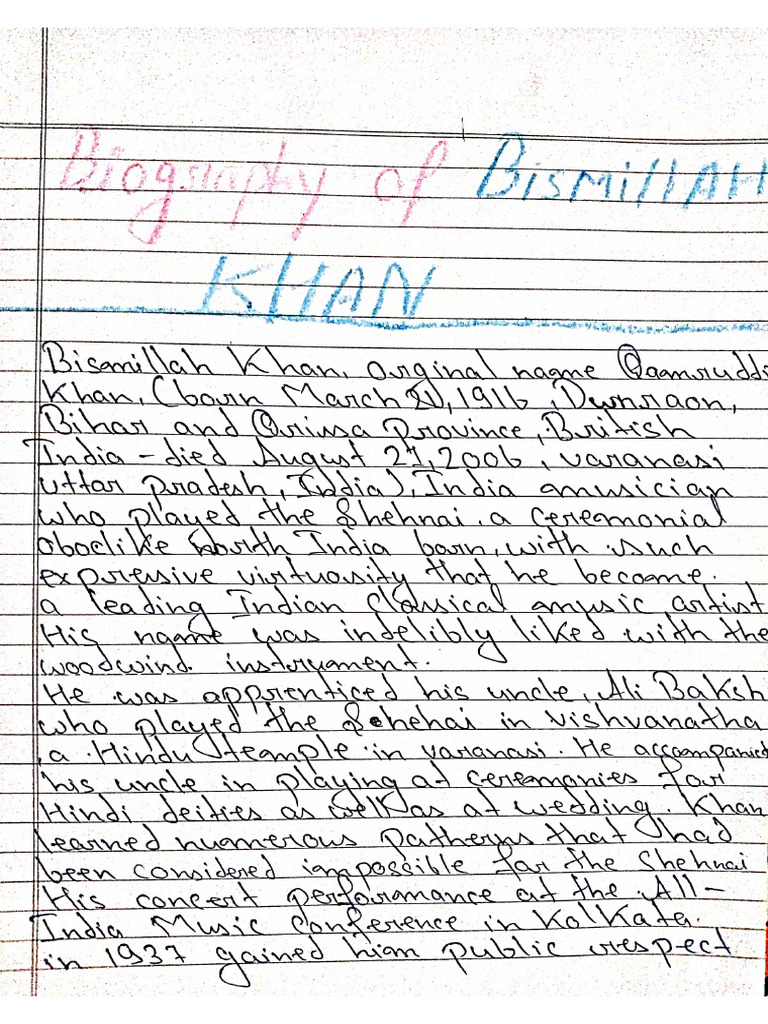 Biography of BismillAH
KHAN
Bismillah Khan, orginal name Qaamruddi
Khan, (bourn March 21, 1916, Dumraon,
Bihar and Orissa province, British
India - died August 21, 2006, varanasi
uttar pradesh, India), India musician
who played the Shehnai, a ceremonial
oboelike North India barn, with such
expressive virtuosity that he become.
a leading Indian Classical music artist
His name was indelibly liked with the
woodwind instrument.
He was apprenticed his uncle, Ali Baksh
who played the Shehai in vishvanatha
, a Hindu temple in varanasi. He accompanied
his uncle in playing at ceremonies for
Hindi deities as well as at wedding. Khan
learned numerous patherns that had
been considered impossible for the Shehnai
His concert performance at the All-
India Music Conference in KolKata.
in 1937 gained him public respect